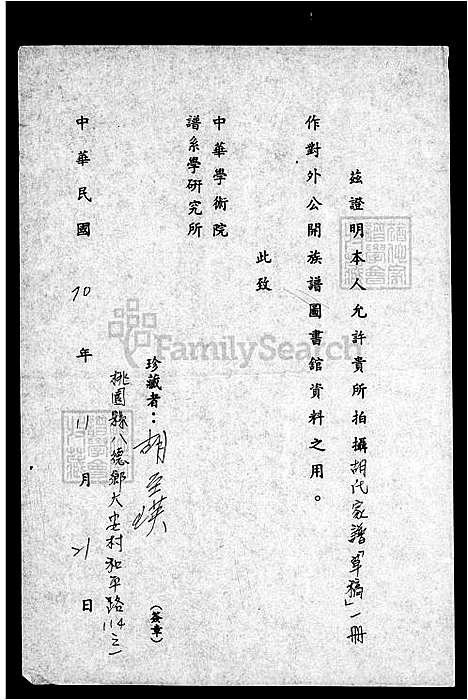 茲證明本人允許貴所拍攝胡氏家譜「草稿」一冊
作對外公開族譜圖書館資料之用。
此致
中華學術院
譜系學研究所
珍藏者：胡至瑛
(簽章)
桃園縣八德鄉大安村和平路114之一
中華民國70年11月21日
FamilySearch